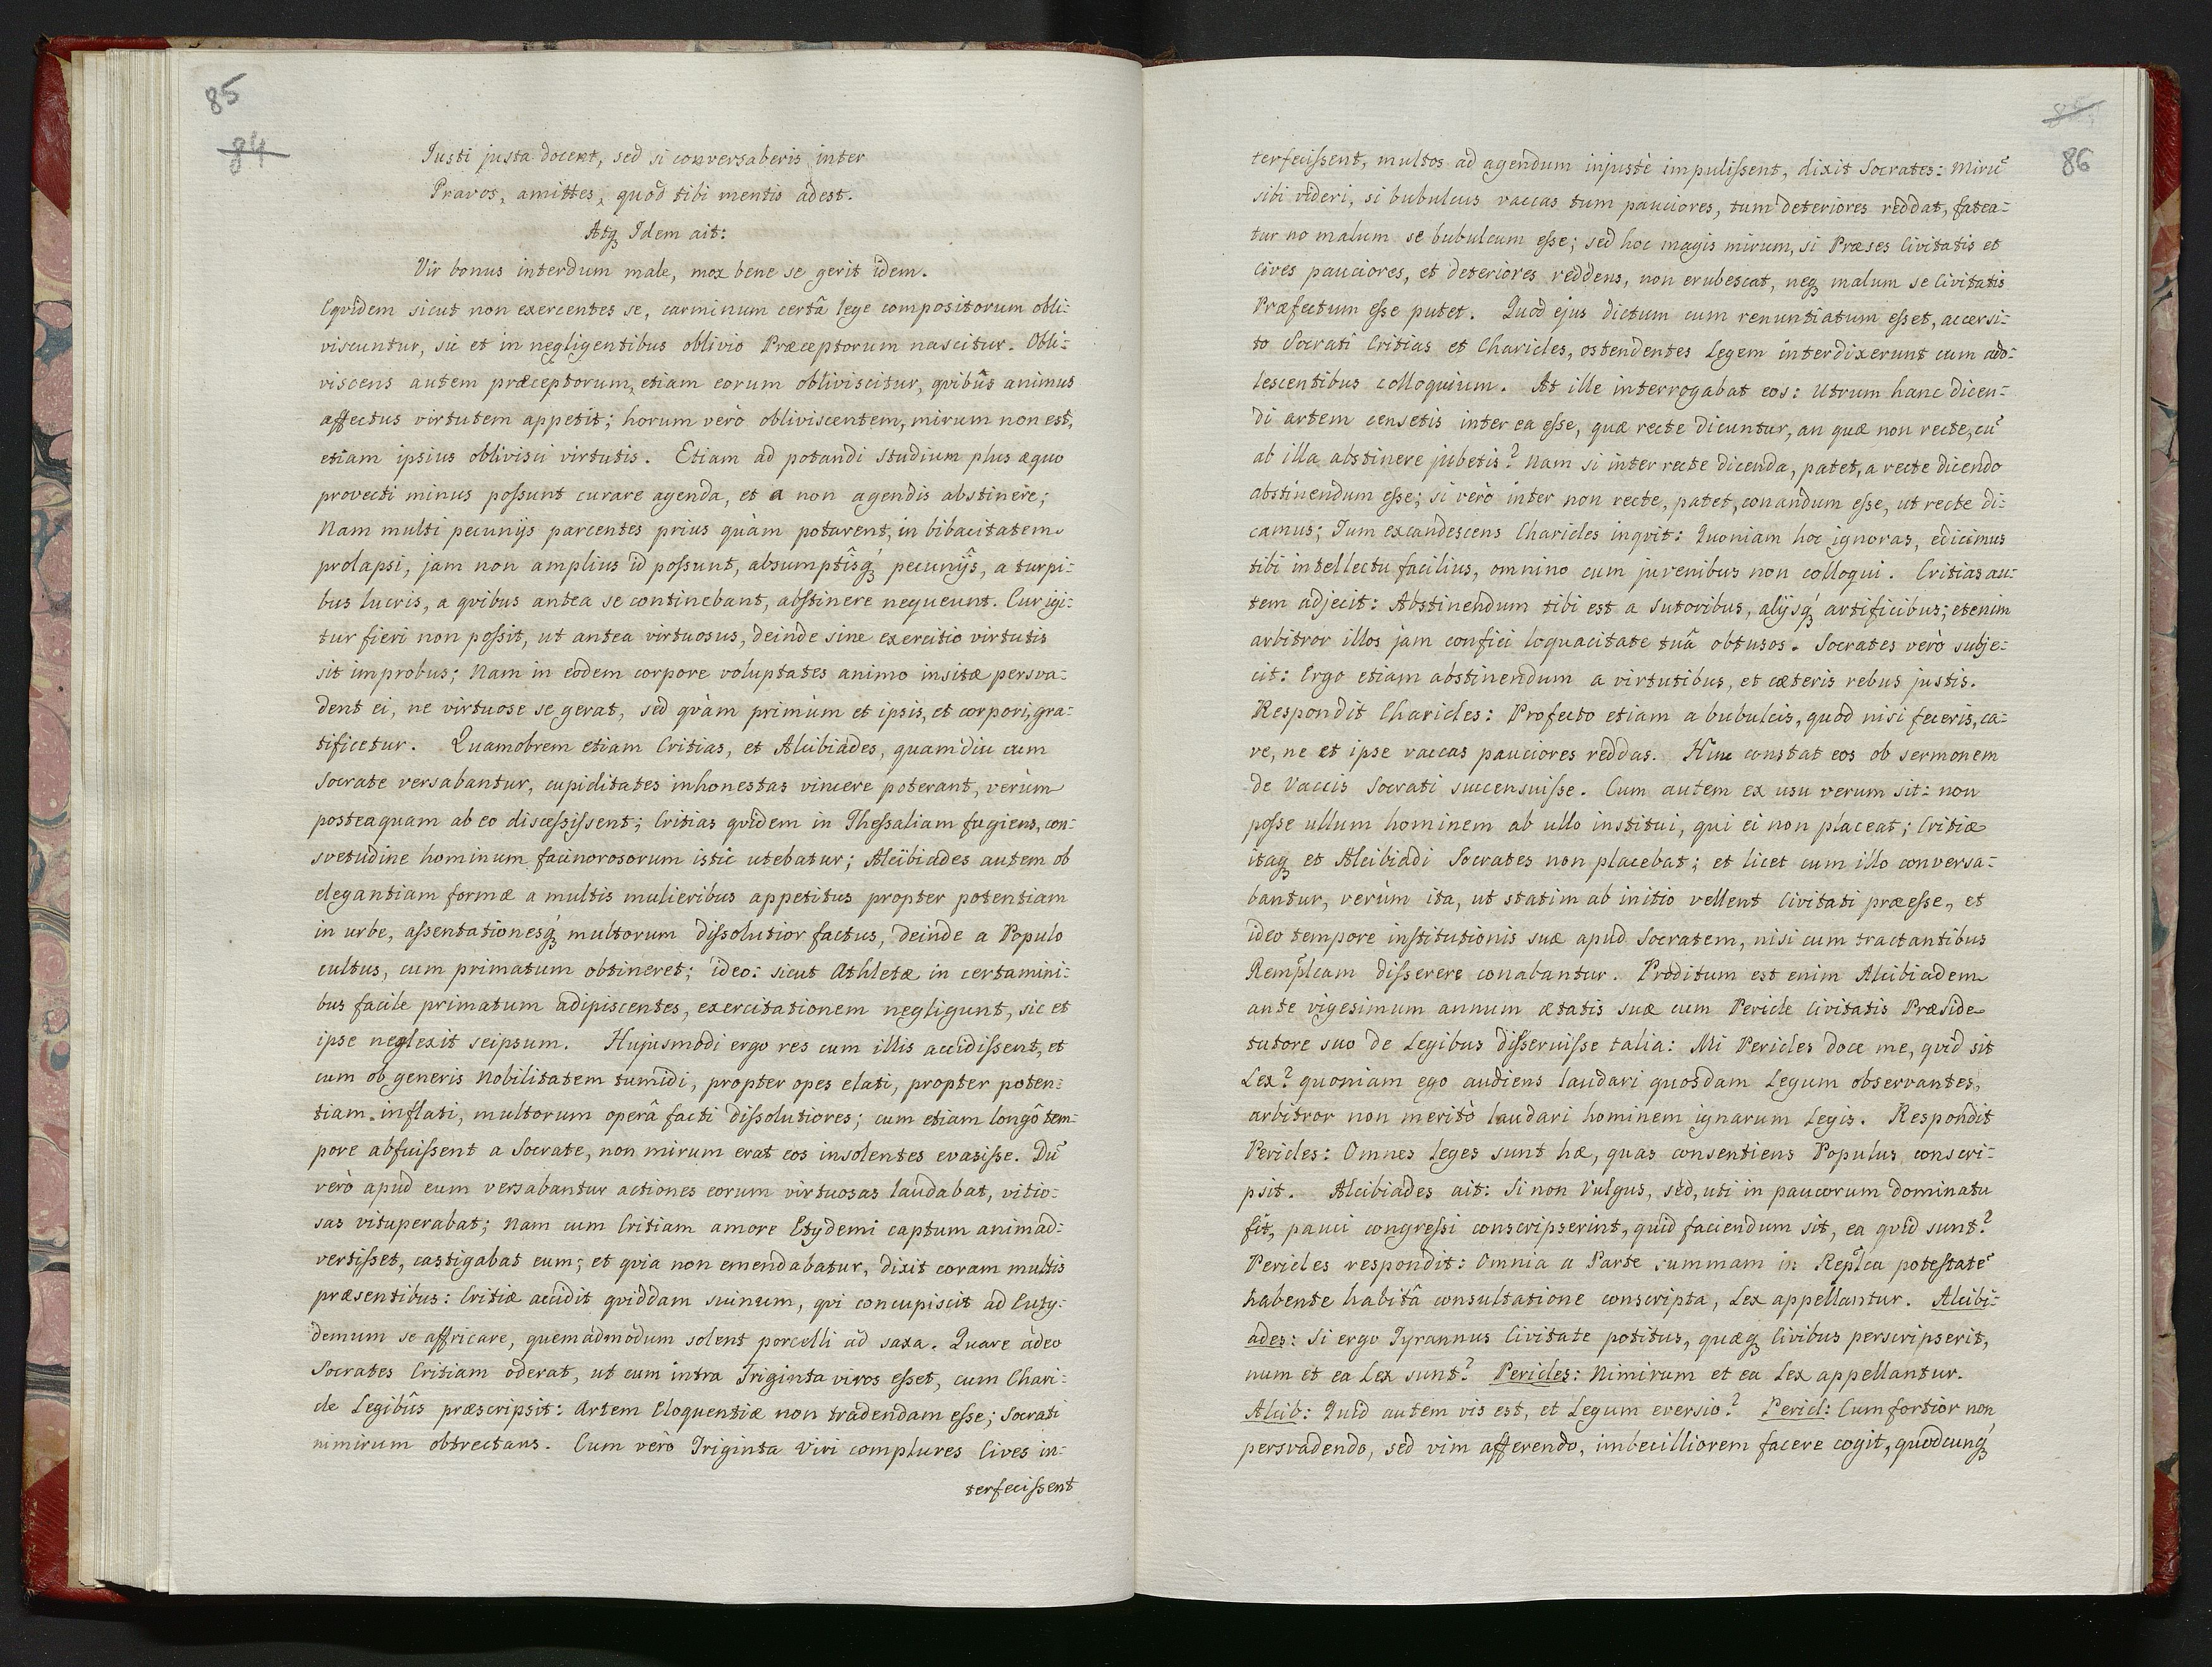 85
84
Justi justa docent, sed si conversaberis inter
Pravos, amittes, quod tibi mentis adest.
Atq̃ Idem ait:
Vir bonus interdum male, mox bene se gerit idem.
Eqvidem sicut non exercentes se, carminum certâ lege compositorum obli-
viscuntur, sic et in negligentibus oblivio Præceptorum nascitur. Obli-
viscens autem præceptorum, etiam eorum obliviscitur, qvibûs animus
affectus virtutem appetit; horum verò obliviscentem, mirum non est,
etiam ipsius oblivisci virtutis. Etiam ad potandi studium plus æquo
provecti minus possunt curare agenda, et a non agendis abstinere;
Nam multi pecunijs parcentes prius quàm potarent, in bibacitatem
prolapsi, jam non amplius id possunt, absumptîsq́ pecunijs, a turpi-
bus lucris, a qvibus antea se continebant, abstinere nequeunt. Cur igi-
tur fieri non possit, ut antea virtuosus, deinde sine exercitio virtutis
sit improbus; Nam in eodem corpore voluptates animo insitæ persva-
dent ei, ne virtuose se gerat, sed qvàm primùm et ipsis, et corpori, gra-
tificetur. Quamobrem etiam Critias, et Alcibiades, quamdiu cum
Socrate versabantur, cupiditates inhonestas vincere poterant, verùm
posteaquam ab eo discessissent; Critias qvidem in Thessaliam fugiens, con-
svetudine hominum facinorosorum istic utebatur; Alcibiades autem ob
elegantiam formæ a multis mulieribus appetitus propter potentiam
in urbe, assentationesq́ multorum dissolutior factus, deinde a Populo
cultus, cum primatum obtineret; ideo: sicut Athletæ in certamini-
bus facile primatum adipiscentes, exercitationem negligunt, sic et
ipse neglexit seipsum. Hujusmodi ergo res cum illis accidissent, et
cum ob generis Nobilitatem tumidi, propter opes elati, propter poten-
tiam inflati, multorum operâ facti dissolutiores; cum etiam longô tem-
pore abfuissent a Socrate, non mirum erat eos insolentes evasisse. Dū
verò apud eum versabantur actiones eorum virtuosas laudabat, vitio-
sas vituperabat; Nam cum Critiam amore Etydemi captum animad-
vertisset, castigabat eum; et qvia non emendabatur, dixit coram multis
præsentibus: Critiæ accidit qviddam suinum, qvi concupiscit ad Euty-
demum se affricare, quemadmodum solent porcelli ad saxa. Quare àdeo
Socrates Critiam oderat, ut cum intra Triginta viros esset, cum Chari-
cle Legibûs præscripsit: Artem Eloquentiæ non tradendam esse; Socrati
nimirum obtrectans. Cum verò Triginta Viri complures Cives in-
terfecissent
86
terfecissent, multos ad agendum injustè impulissent, dixit Socrates: Mirū
sibi videri, si bubulcus vaccas tum pauciores, tum deteriores reddat, fatea-
tur no malum se bubulcum esse; sed hoc magis mirum, si Præses Civitatis et
cives pauciores, et deteriores reddens, non erubescat, neq̃ malum se Civitatis
Præfectum esse putet. Quod ejus dictum cum renuntiatum esset, accersi-
to Socrati Critias et Charicles, ostendentes Legem interdixerunt cum ado-
lescentibus colloquium. At ille interrogabat eos: Utrum hanc dicen-
di artem censetis inter ea esse, quæ recte dicuntur, an quæ non recte, cū
ab illa abstinere jubetis? Nam si inter recte dicenda, patet, a recte dicendo
abstinendum esse; si verò inter non recte, patet, conandum esse, ut recte di-
camus; Tum excandescens Charicles inqvit: Quoniam hoc ignoras, edicimus
tibi intellectu facilius, omnino cum juvenibus non colloqui. Critias au-
tem adjecit: Abstinendum tibi est a Sutoribus, alijsq́ artificibus; etenim
arbitror illos jam confici loquacitate tuâ obtusos. Socrates verò subje-
cit: Ergo etiam abstinendum a virtutibus, et cæteris rebus justis.
Respondit Charicles: Profecto etiam a bubulcis, quòd nisi feceris, ca-
ve, ne et ipse vaccas pauciores reddas. Hinc constat eos ob sermonem
de Vaccis Socrati succensuisse. Cum autem ex usu verum sit: non
posse ullum hominem ab ullo institui, qui ei non placeat; Critiæ
itaq̃ et Alcibiadi Socrates non placebat; et licet cum illo conversa-
bantur, verùm ita, ut statim ab initio vellent Civitati præesse, et
ideo tempore institutionis suæ apud Socratem, nisi cum tractantibus
Remp̃lcam disserere conabantur. Proditum est enim Alcibiadem
ante vigesimum annum ætatis suæ cum Pericle Civitatis Præside
tutore suo de Legibus disseruisse talia: Mi Pericles doce me, qvid sit
Lex? quoniam ego audiens laudari quosdam Legum observantes,
arbitror non meritò laudari hominem ignarum Legis. Respondit
Pericles: Omnes Leges sunt hæ, quas consentiens Populus conscri-
psit. Alcibiades ait: Si non Vulgus, sed, uti in paucorum dominatu
fit, pauci congressi conscripserint, quid faciendum sit, ea qvid sunt?
Pericles respondit: Omnia a Parte summam in Rep̃lca potestatē
habente habitâ consultatione conscripta, Lex appellantur. Alcibi-
ades: Si ergo Tyrannus Civitate potitus, quæq̃ Civibus perscripserit,
num et ea Lex sunt? Pericles: Nimirum et ea Lex appellantur.
Alcib: Quid autem vis est, et Legum eversio? Pericl: Cum fortior non
persvadendo, sed vim afferendo, imbecilliorem facere cogit, quodcunq́